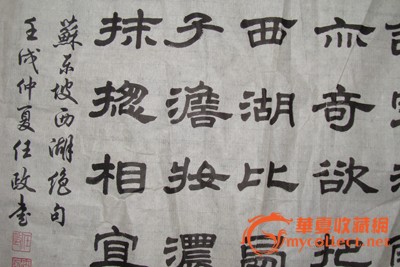 亦奇欲把
西湖比
子澹妝濃
抹揔相宜
蘇东坡西湖绝句
壬戌仲夏任政書
華夏收藏網
mycollect.net